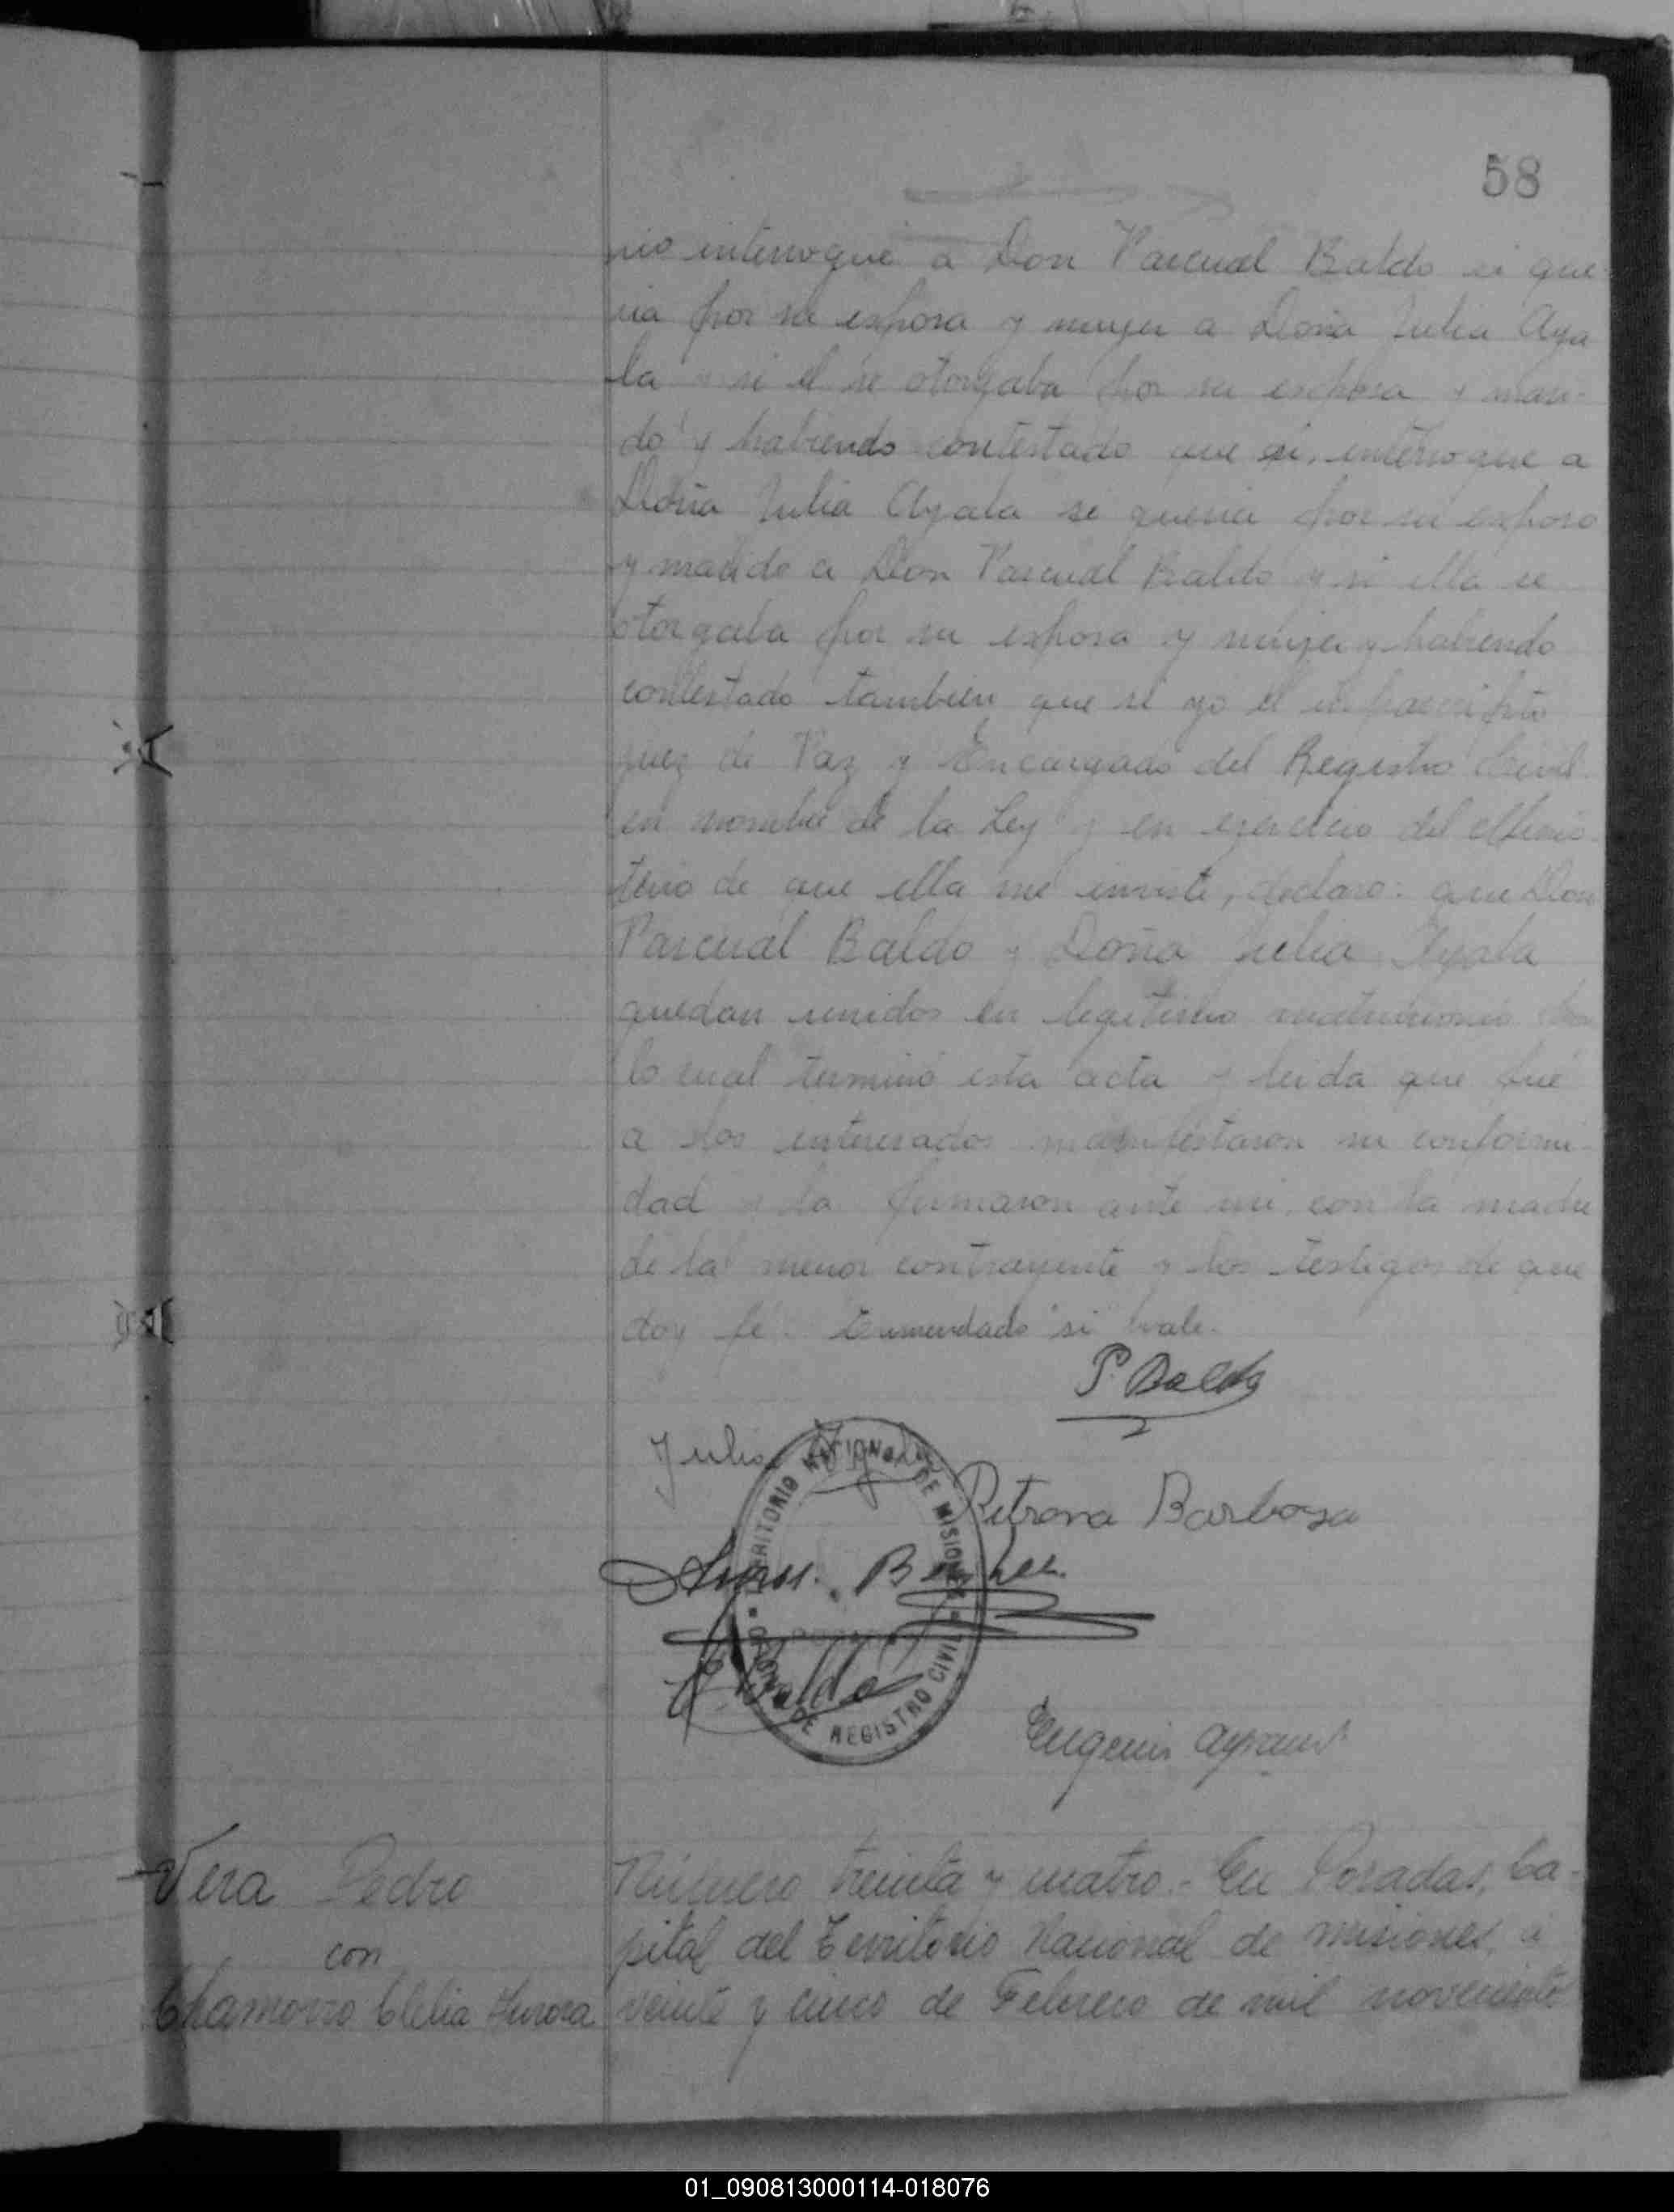 58
nio interrogué a Don Pascual Baldo si que
ria por su esposa y mujer a Doña Julia Aya
la y si el se otorgaba por su esposo y mari-
do y habiendo contestado que si, interrogue a
Doña Julia Ayala si queria por su esposo
y marido a Don Pascual Baldo y si ella se
otorgaba por su esposa y mujer y habiendo
contestado tambien que si yo el infrascripto
Juez de Paz y Encargado del Registro Civil
en nombre de la Ley y en ejercicio del Minis
terio de que ella me inviste, declaro: que Don
Pascual Baldo y Doña Julia Ayala
quedan unidos en legitimo matrimonio con
lo cual terminó esta acta y leida que fué
a los interesados manifestaron su conformi-
dad y la firmaron ante mi, con la madre
de la menor contrayente y los testigos de que
doy fé. Enmendado "si" vale.
P. Baldo
Julia Ayala
Petrona Barboza
TERRITORIO NACIONAL DE MISIONES
Baldo
DE REGISTRO CIVIL
Eugenio
Vera Pedro
con
Chamorro Clelia Aurora
Número treinta y cuatro.- En Posadas, Ca-
pital del Territorio Nacional de Misiones, á
veinte y cinco de Febrero de mil novecientos
01_090813000114-018076